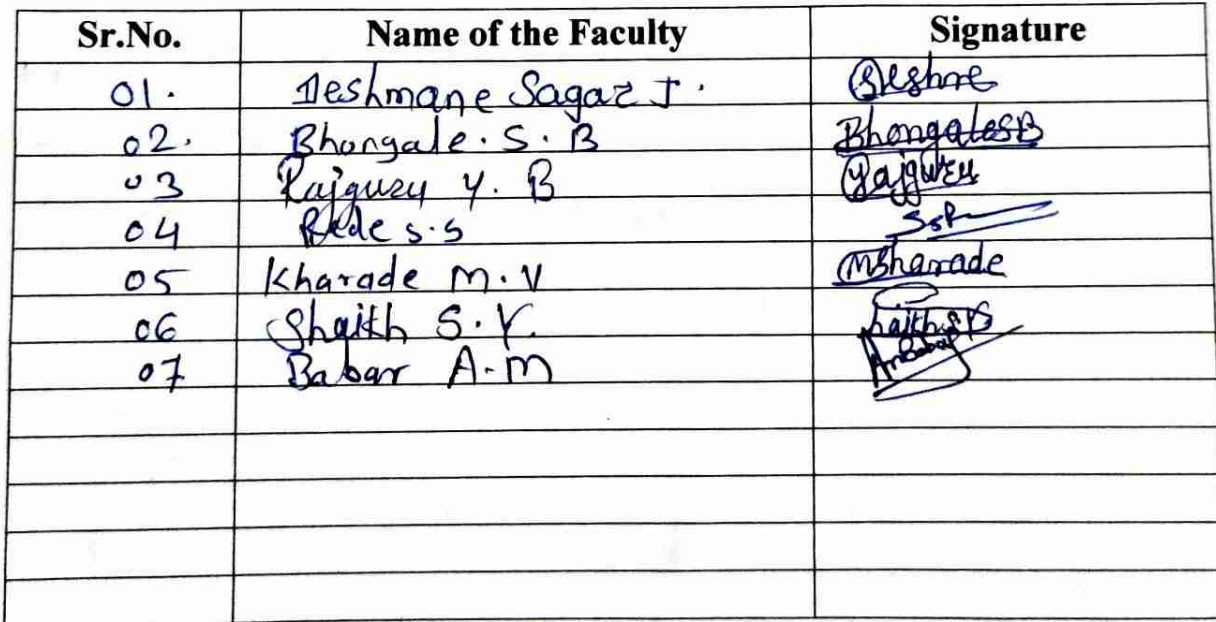 Sr.No. Name of the Faculty Signature
01. Deshmane Sagar J.
02. Bhongale. S. B BhongaleSB
03 Rajguru Y. B Rajguru
04 Rede s.s SSR
05 Kharade M. V MKharade
06 Shaikh S. Y.
07 Babar A.M AmBabar